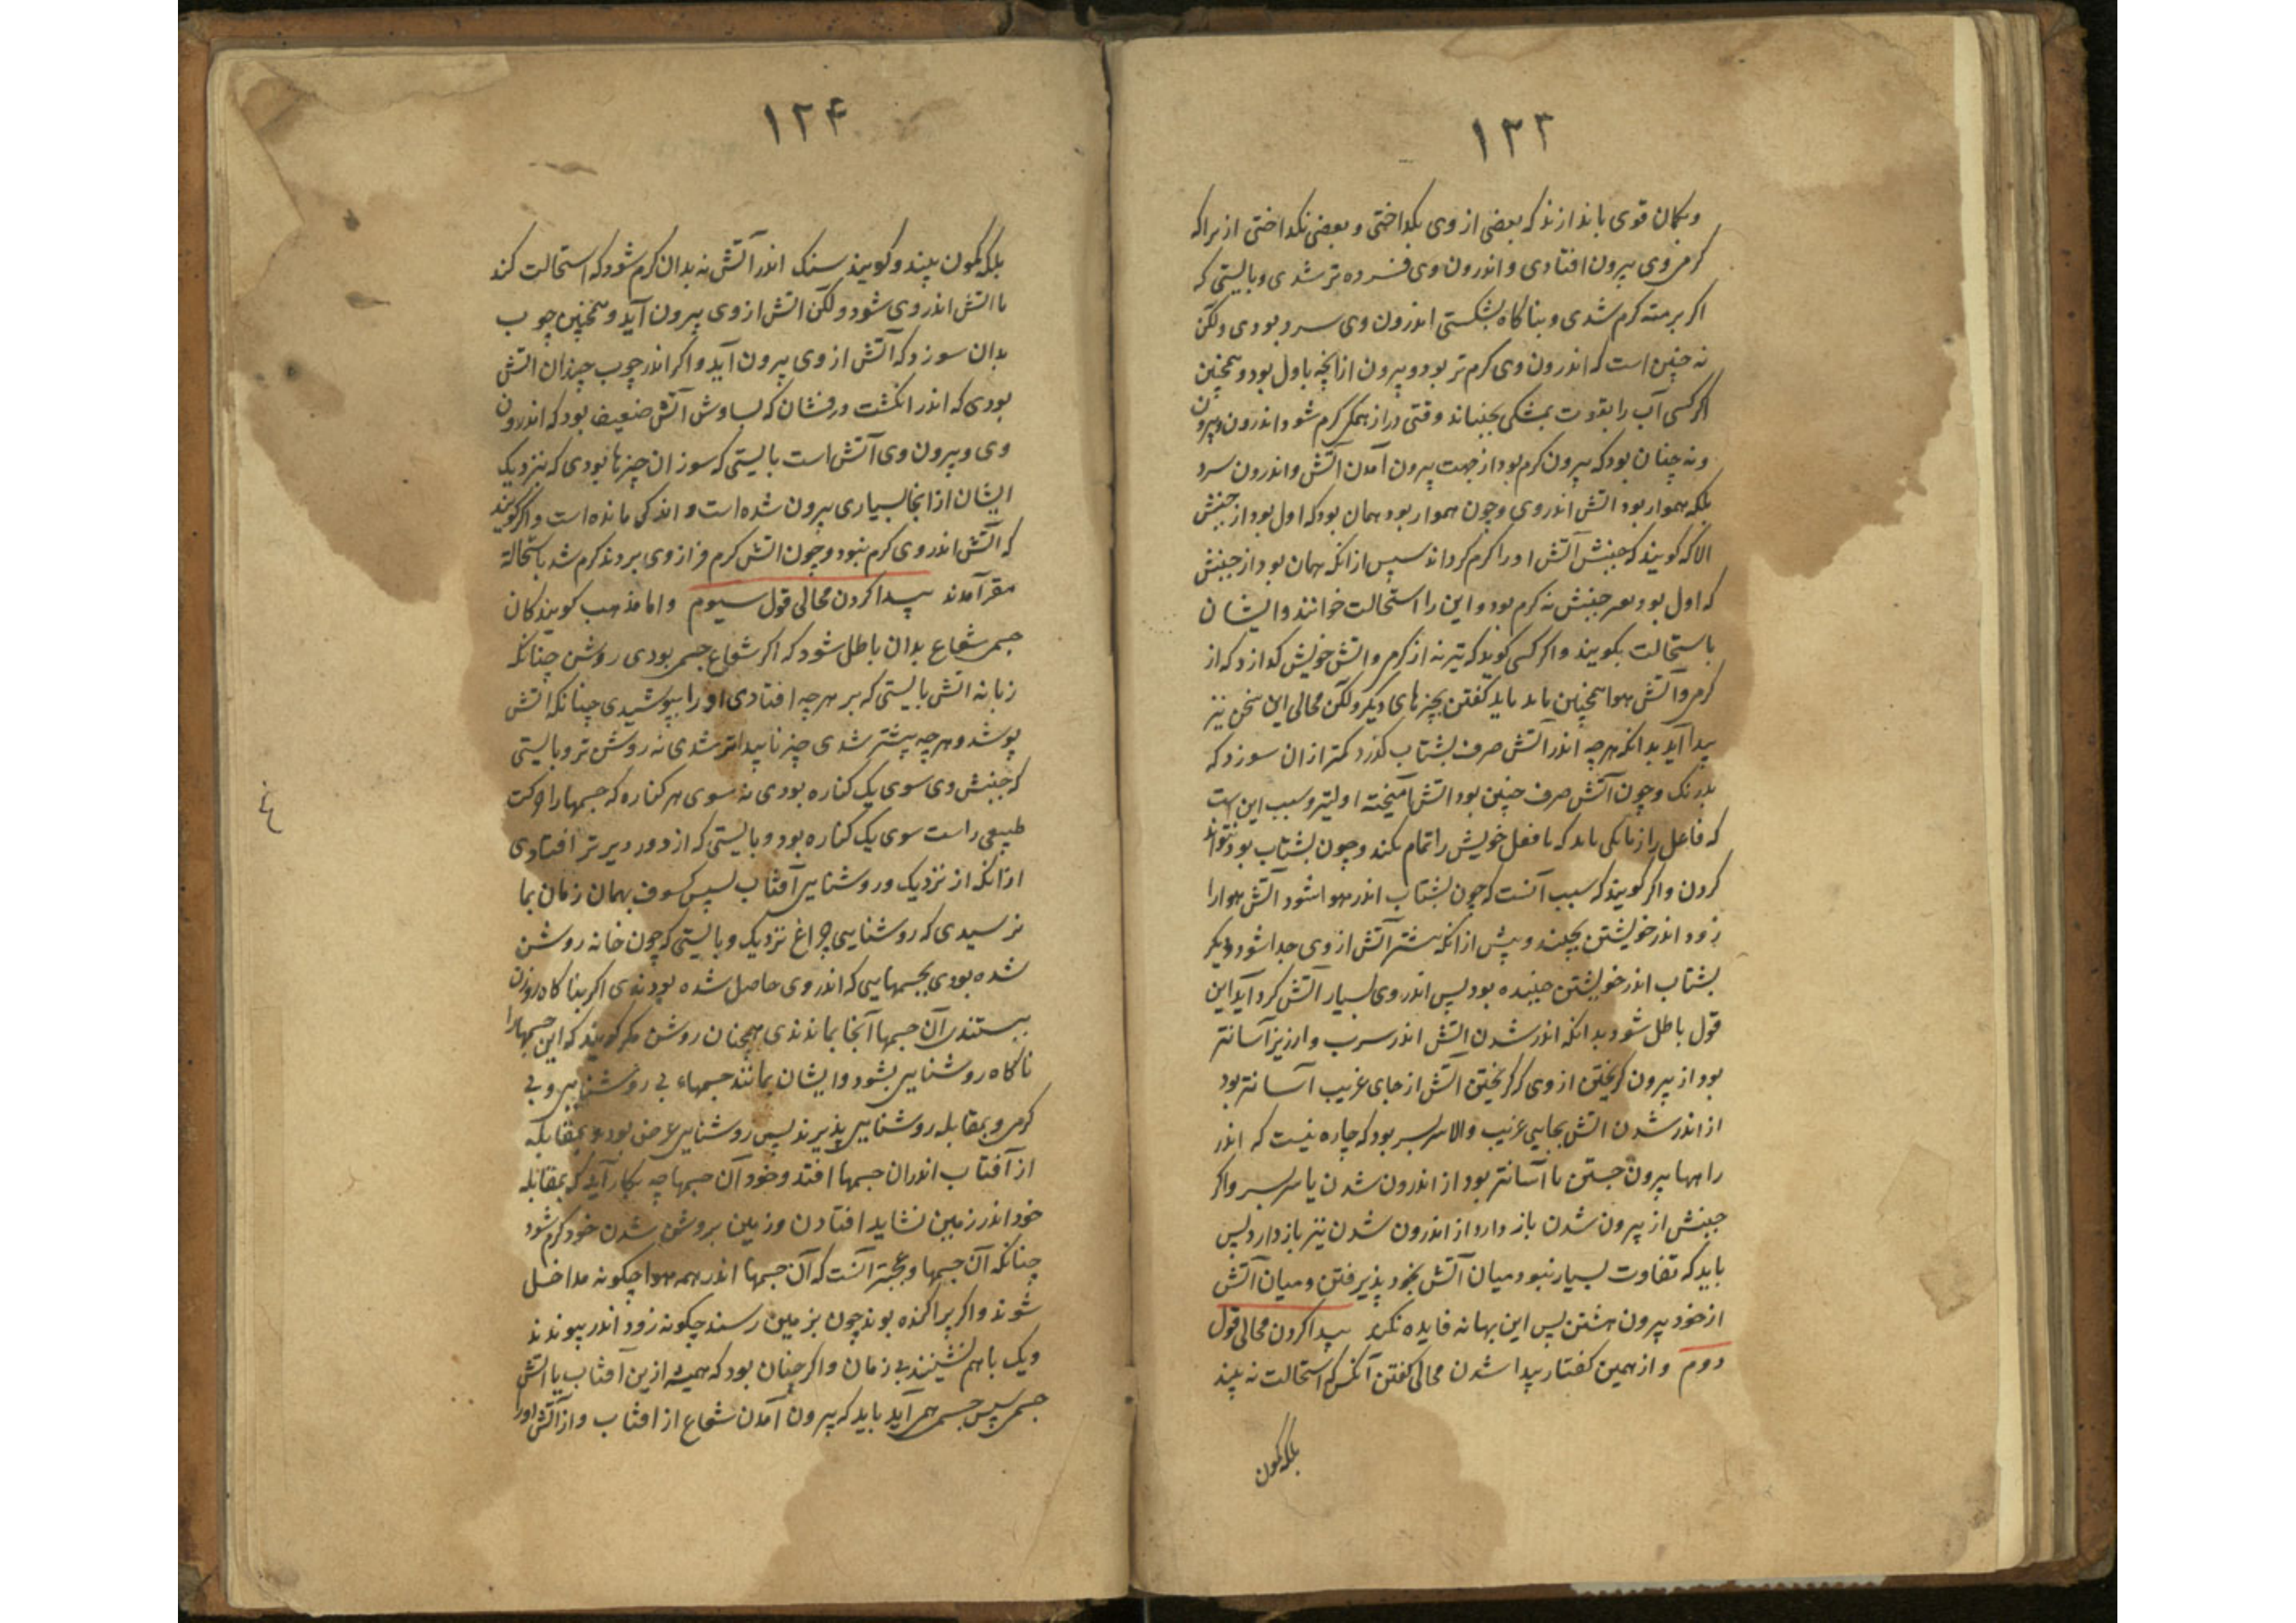 ۱۲۳
وبکمان قوی باندازند که بعضی از وی بکداختی و بعضی نکداختی ازیراکه
کرمی وی بیرون افتادی و اندرون وی فسرده تر شدی و بایستی که
اکر برمته کرم شدی و بناکاه بشکستی اندرون وی سرد بودی ولکن
نه چنین است که اندرون وی کرم تر بود و بیرون از آنچه باول بود و همچنین
اکر کسی آب را بقوت بمشکی بجنباند وقتی دراز همکی کرم شود اندرون و بیرون
ونه چنان بود که بیرون کرم بود از جهت بیرون آمدن آتش و اندرون سرد
بلکه هموار بود اتش اندر وی و چون هموار بود همان بود که اول بود از جنبش
الا که کویند که جنبش آتش او را کرم کرداند سپس ازانکه همان بود از جنبش
که اول بود و جنبش نه کرم بود و این را استحالت خوانند و ایشان
باستحالت بکویند و اکر کسی کوید که تیر نه از کرمی و اتش خویش کدازد که از
کرمی و آتش هوا همچنین باید کفتن بچیزهای دیکر ولکن محالی این سخن نیز
پیدا آید بدانکه هرچه اندر آتش صرف بشتاب کذرد کمتر ازان سوزد که
بدرنک و چون آتش صرف چنین بود اتش آمیخته اولیتر و سبب این است
که فاعل را زمانکی باید که تا فعل خویش را تمام بکند و چون بشتاب بود نتواند
کردن و اکر کویند که سبب آنست که چون بشتاب اندر هوا شود آتش هوا را
زود اندر خویشتن بچیند و پیش ازانکه بیشتر آتش از وی جدا شود و دیکر
بشتاب اندر خویشتن چیننده بود پس اندر وی بسیار آتش کرد آید این
قول باطل شود بدانکه اندر شدن اتش اندر سرب و ارزیز آسانتر
بود از بیرون کریختن از وی که کریختن آتش از جای غریب آسانتر بود
از اندر شدن اتش بجایی غریب والا سربسر بود که چاره نیست که اندر
راهها بیرون جستن یا آسانتر بود از اندرون شدن یا سربسر و اکر
جنبش از بیرون شدن باز دارد از اندرون شدن نیز باز دارد پس
باید که تفاوت بسیار نبود میان آتش بخود پذیرفتن و میان آتش
از خود بیرون هشتن پس این بهانه فایده نکرد پیدا کردن محالی قول
دوم و از همین کفتار پیدا شدن محالی کفتن آنکس که استحالت نه بیند
بلکه کمون
۱۲۴
بلکه کمون بیند و کویند سنک اندر آتش نه بدان کرم شود که استحالت کند
تا اتش اندر وی شود ولکن اتش از وی بیرون آید و همچنین چوب
بدان سوزد که آتش از وی بیرون آید و اکر اندر چوب چندان اتش
بودی که اندر انکشت درفشان که بساوش آتش ضعیف بود که اندرون
وی و بیرون وی آتش است بایستی که سوزان چیزها بودی که بنزدیک
ایشان از انجا بسیاری بیرون شده است و اندکی مانده است و اکر کویند
که آتش اندر وی کرم نبود و چون اتش کرم فراز وی بردند کرم شد باستحالة
مقر آمدند پیدا کردن محالی قول سیوم و اما مذهب کویندکان
جسمی شعاع بدان باطل شود که اکر شعاع جسم بودی روشن چنانکه
زبانه اتش بایستی که بر هرچه افتادی او را بپوشیدی چنانکه اتش
پوشد و هرچه بیشتر شدی چیز ناپیداتر شدی نه روشن تر و بایستی
که جنبش وی سوی یک کناره بودی نه سوی هر کناره که جسمها را حرکت
طبیعی راست سوی یک کناره بود و بایستی که از دور دیرتر افتادی
ازانکه از نزدیک و روشنایی آفتاب سپس کسوف بهمان زمان بما
نرسیدی که روشنایی چراغ نزدیک و بایستی که چون خانه روشن
شده بودی بجسمهایی که اندر وی حاصل شده بودندی اکر بناکاه روزن
ببستندی آن جسمها آنجا بماندندی همچنان روشن مکر کویند که این جسمها را
ناکاه روشنایی بشود و ایشان بمانند جسمهاء بی روشنایی و بی
کرمی و بمقابله روشنایی پذیرند پس روشنایی عرض بود و بمقابلکه
از آفتاب اندران جسمها افتد و خود آن جسمها چه بکار آید که بمقابله
خود اندر زمین نشاید افتادن و زمین بروشن شدن خود کرم شود
چنانکه آن جسمها و عجبتر آنست که آن جسمها اندر همه هوا چکونه مداخل
شوند و اکر پراکنده بوند چون بزمین رسند چکونه زود اندر پیوندند
و یک با هم نشینند بی زمان و اکر چنان بود که همیشه ازین آفتاب یا اتش
جسمی سپس جسمی همی آید باید که بیرون آمدن شعاع از افتاب و از آتش او را